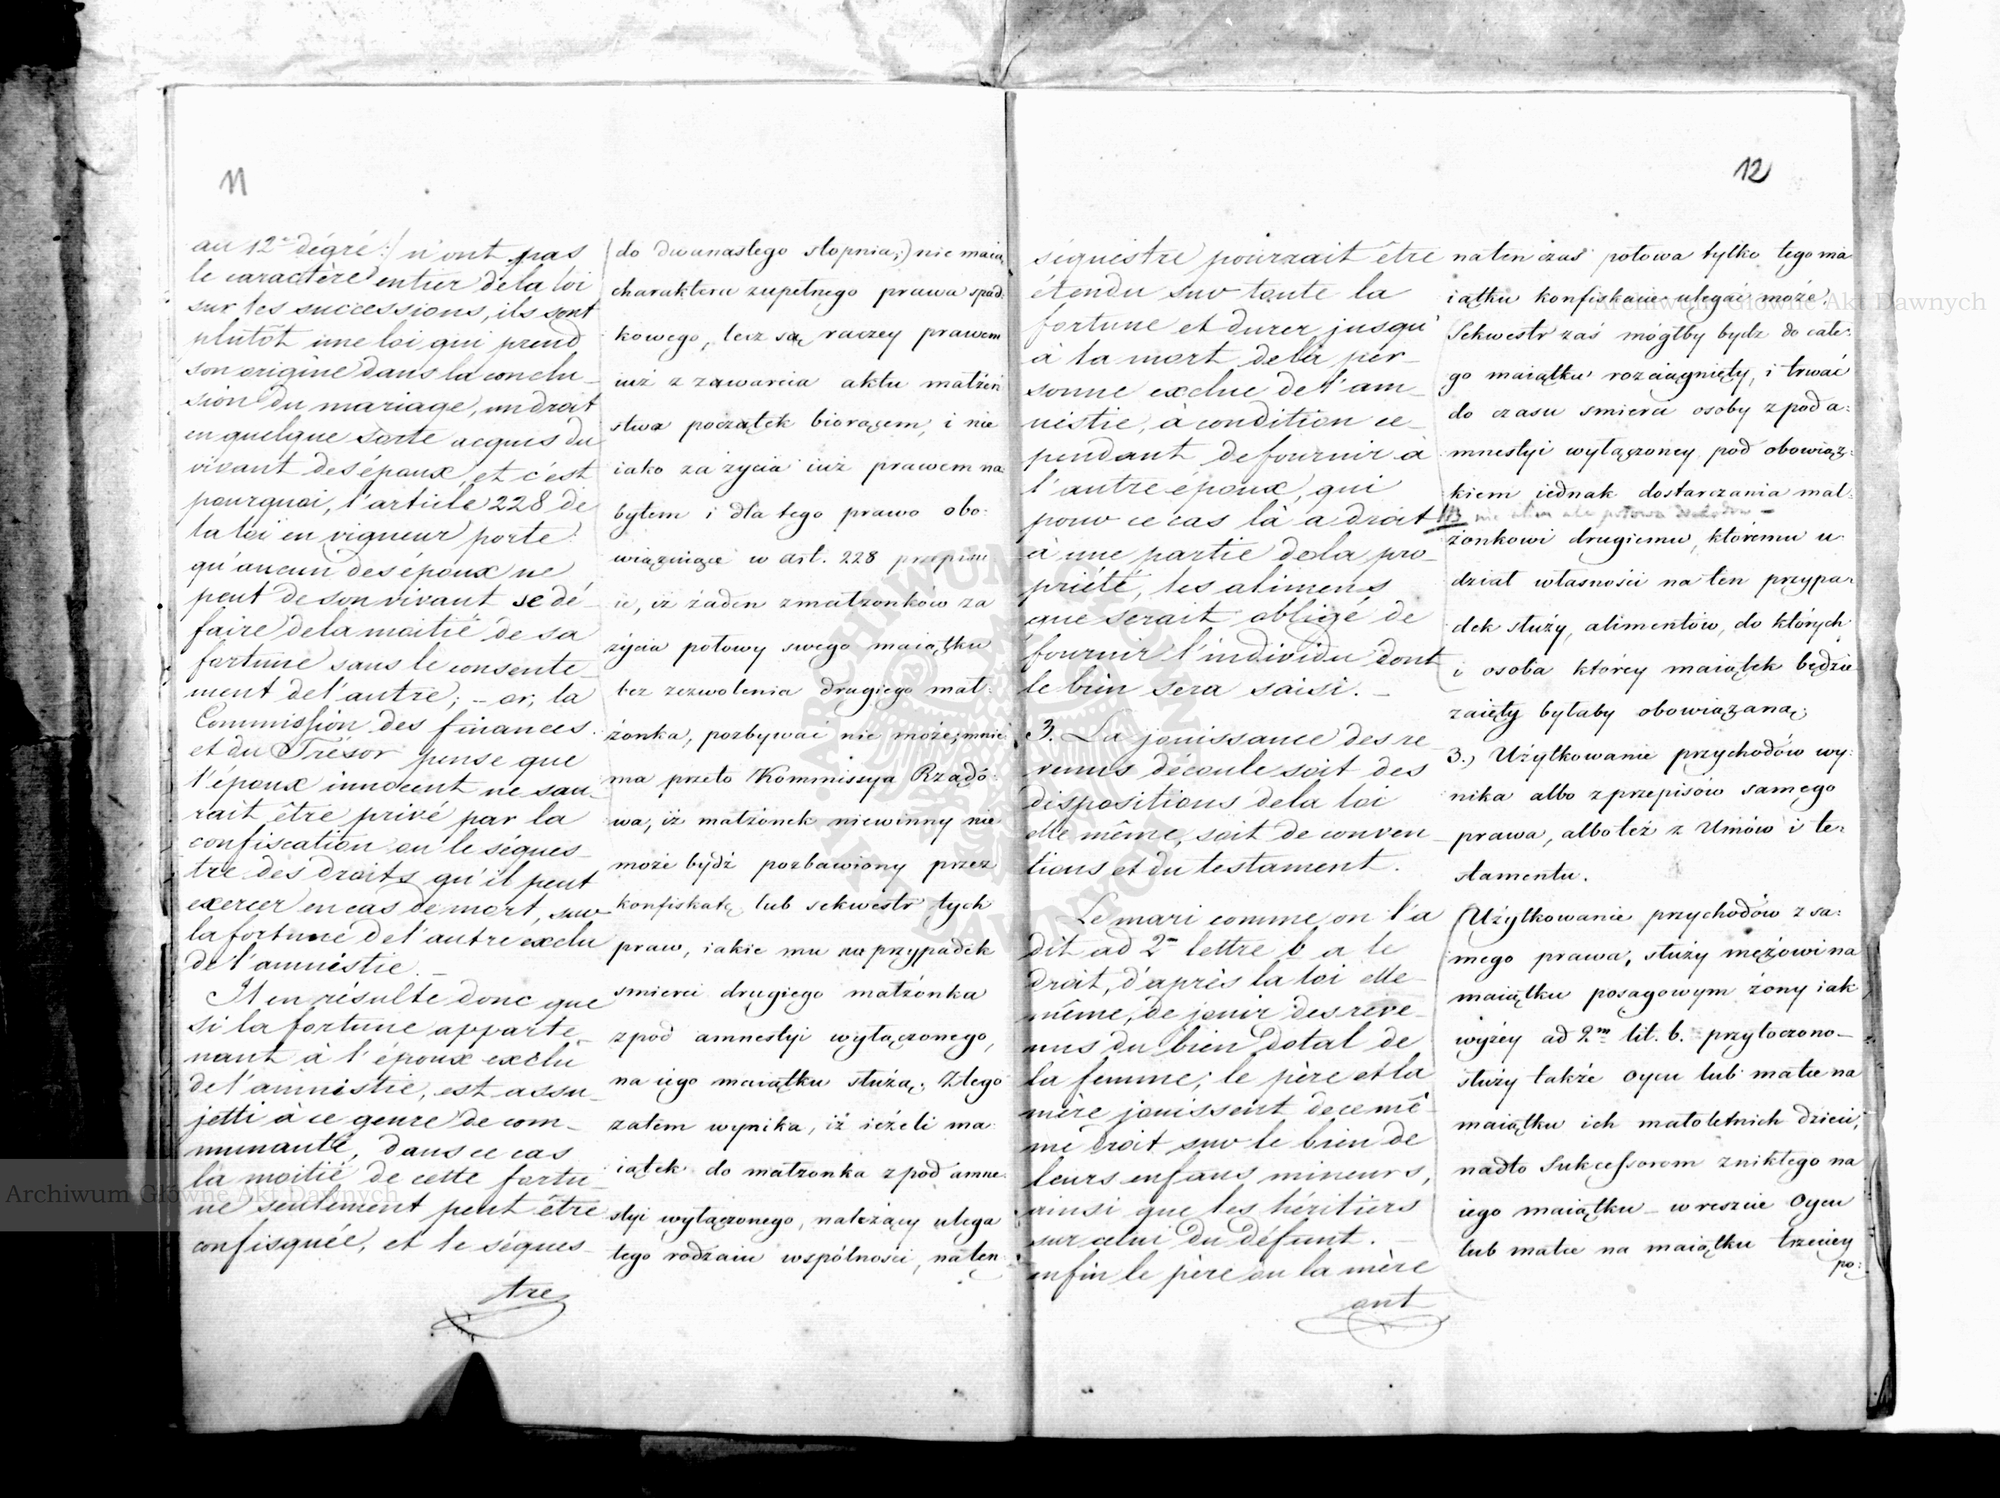 11
au 12e dégré:/ n'ont pas
le caractère entier de la loi
sur les successions, ils sont
plutôt une loi qui prend
son origine dans la conclu-
sion du mariage, un droit
en quelque sorte acquis du
vivant des époux, et c'est
pourquoi, l'article 228 de
la loi en vigueur porte:
qu'aucun des époux ne
peut de son vivant se dé-
faire de la moitié de sa
fortune sans le consente-
ment de l'autre; - or, la
Commission des finances
et du Trésor pense que
l'époux innocent ne sau-
rait être privé par la
confiscation ou le séques-
tre des droits qu'il peut
exercer en cas de mort, sur
la fortune de l'autre exclu
de l'amnistie. -
Il en résulte donc que
si la fortune apparte-
nant à l'époux exclu
de l'amnistie, est assu-
jetti à ce genre de com-
munauté, dans ce cas
la moitié de cette fortu-
ne seulement peut être
confisquée, et le séques-
tre
(do dwunastego stopnia;) nie maią
charakteru zupełnego prawa spad-
kowego, lecz są raczey prawem
iuż z zawarcia aktu małżeń
stwa początek biorącem, i nie
iako za życia iuż prawem na-
bytem i dla tego prawo obo-
wiązuiące w art. 228 przepisu
ie, iż żaden z małżonków za
życia połowy swego maiątku
bez zezwolenia drugiego mał-
żonka, pozbywać nie może; mnie
ma przeto Kommissya Rządo-
wa, iż małżonek niewinny nie
może bydź pozbawiony przez
konfiskatę lub sekwestr tych
praw, iakie mu na przypadek
smierci drugiego małżonka
z pod amnestyi wyłączonego,
na iego maiątku służą; Z tego
zatem wynika, iż ieżeli ma-
iątek do małżonka z pod amne-
styi wyłączonego, należący ulega
tego rodzaiu wspólności, naten-
12
séquestre pourrait être
étendu sur toute la
fortune et durer jusqu'
à la mort de la per-
sonne exclue de l'am-
nistie, à condition ce-
pendant de fournir à
l'autre époux, qui
pour ce cas là a droit
à une partie de la pro-
priété, les alimens
que serait obligé de
fournir l'individu dont
le bien sera saisi. -
3. La jouissance des re-
venus découle soit des
dispositions de la loi
elle même, soit de conven-
tions et du testament.
Le mari comme on l'a
dit ad 2m lettre b a le
droit, d'après la loi elle-
même, de jouir des reve-
nus du bien dotal de
la femme; le père et la
mère jouissent de ce mê-
me droit sur le bien de
leurs enfans mineurs,
ainsi que les héritiers
sur celui du défunt. -
enfin le père ou la mère
ont
natenczas połowa tylko tego ma
iątku konfiskacie ulegać może.
Sekwestr zaś mógłby bydz do całe-
go maiątku rozciągnięty, i trwać
do czasu smierci osoby z pod a-
mnestyi wyłączoney pod obowiąz-
kiem iednak dostarczania mał-
NB nie
żonkowi drugiemu, któremu u-
dział własności na ten przypa-
dek służy, alimentów, do których
i osoba którey maiątek będzie
zaięty byłaby obowiązaną;
3.) Użytkowanie przychodów wy-
nika albo z przepisów samego
prawa, albo też z Umów i te-
stamentu.
(Użytkowanie przychodów z sa-
mego prawa, służy mężowi na
maiątku posagowym żony iak
wyżey ad 2m lit. b. przytoczono -
służy także Oycu lub matce na
maiątku ich małoletnich dzieci;
nadto Sukcessorom znikłego na
iego maiątku - w reszcie Oycu
lub matce na maiątku trzeciey
po-
Archiwum Główne Akt Dawnych
Archiwum Główne Akt Dawnych